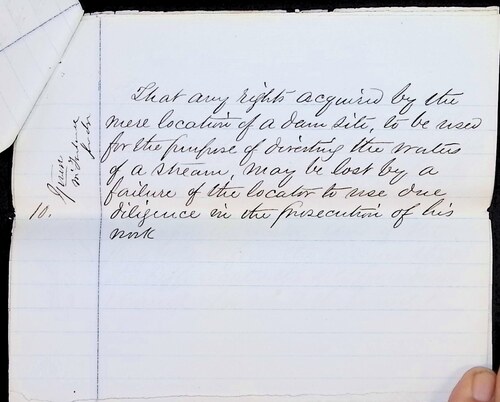 That any rights acquired by the
mere location of a dam site, to be used
for the purpose of diverting the waters
of a stream, may be lost by a
failure of the locator to use due
10. diligence in the prosecution of his
work
Given